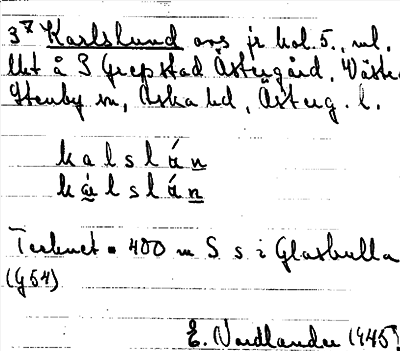 Karlslund avs jr kol. 5.,
Grepstad Östergård, Väst
Stenby sn, Aska hd, Österg. l.
kalslán
kálslán
Tecknet = 400 m S s i Glasbulla
(G54)
E. Nordlander 1945